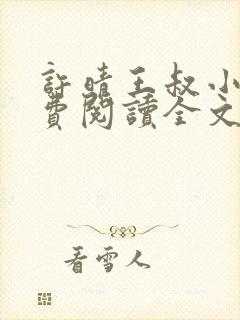 許晴王叔小
費閱讀全文
看雪人